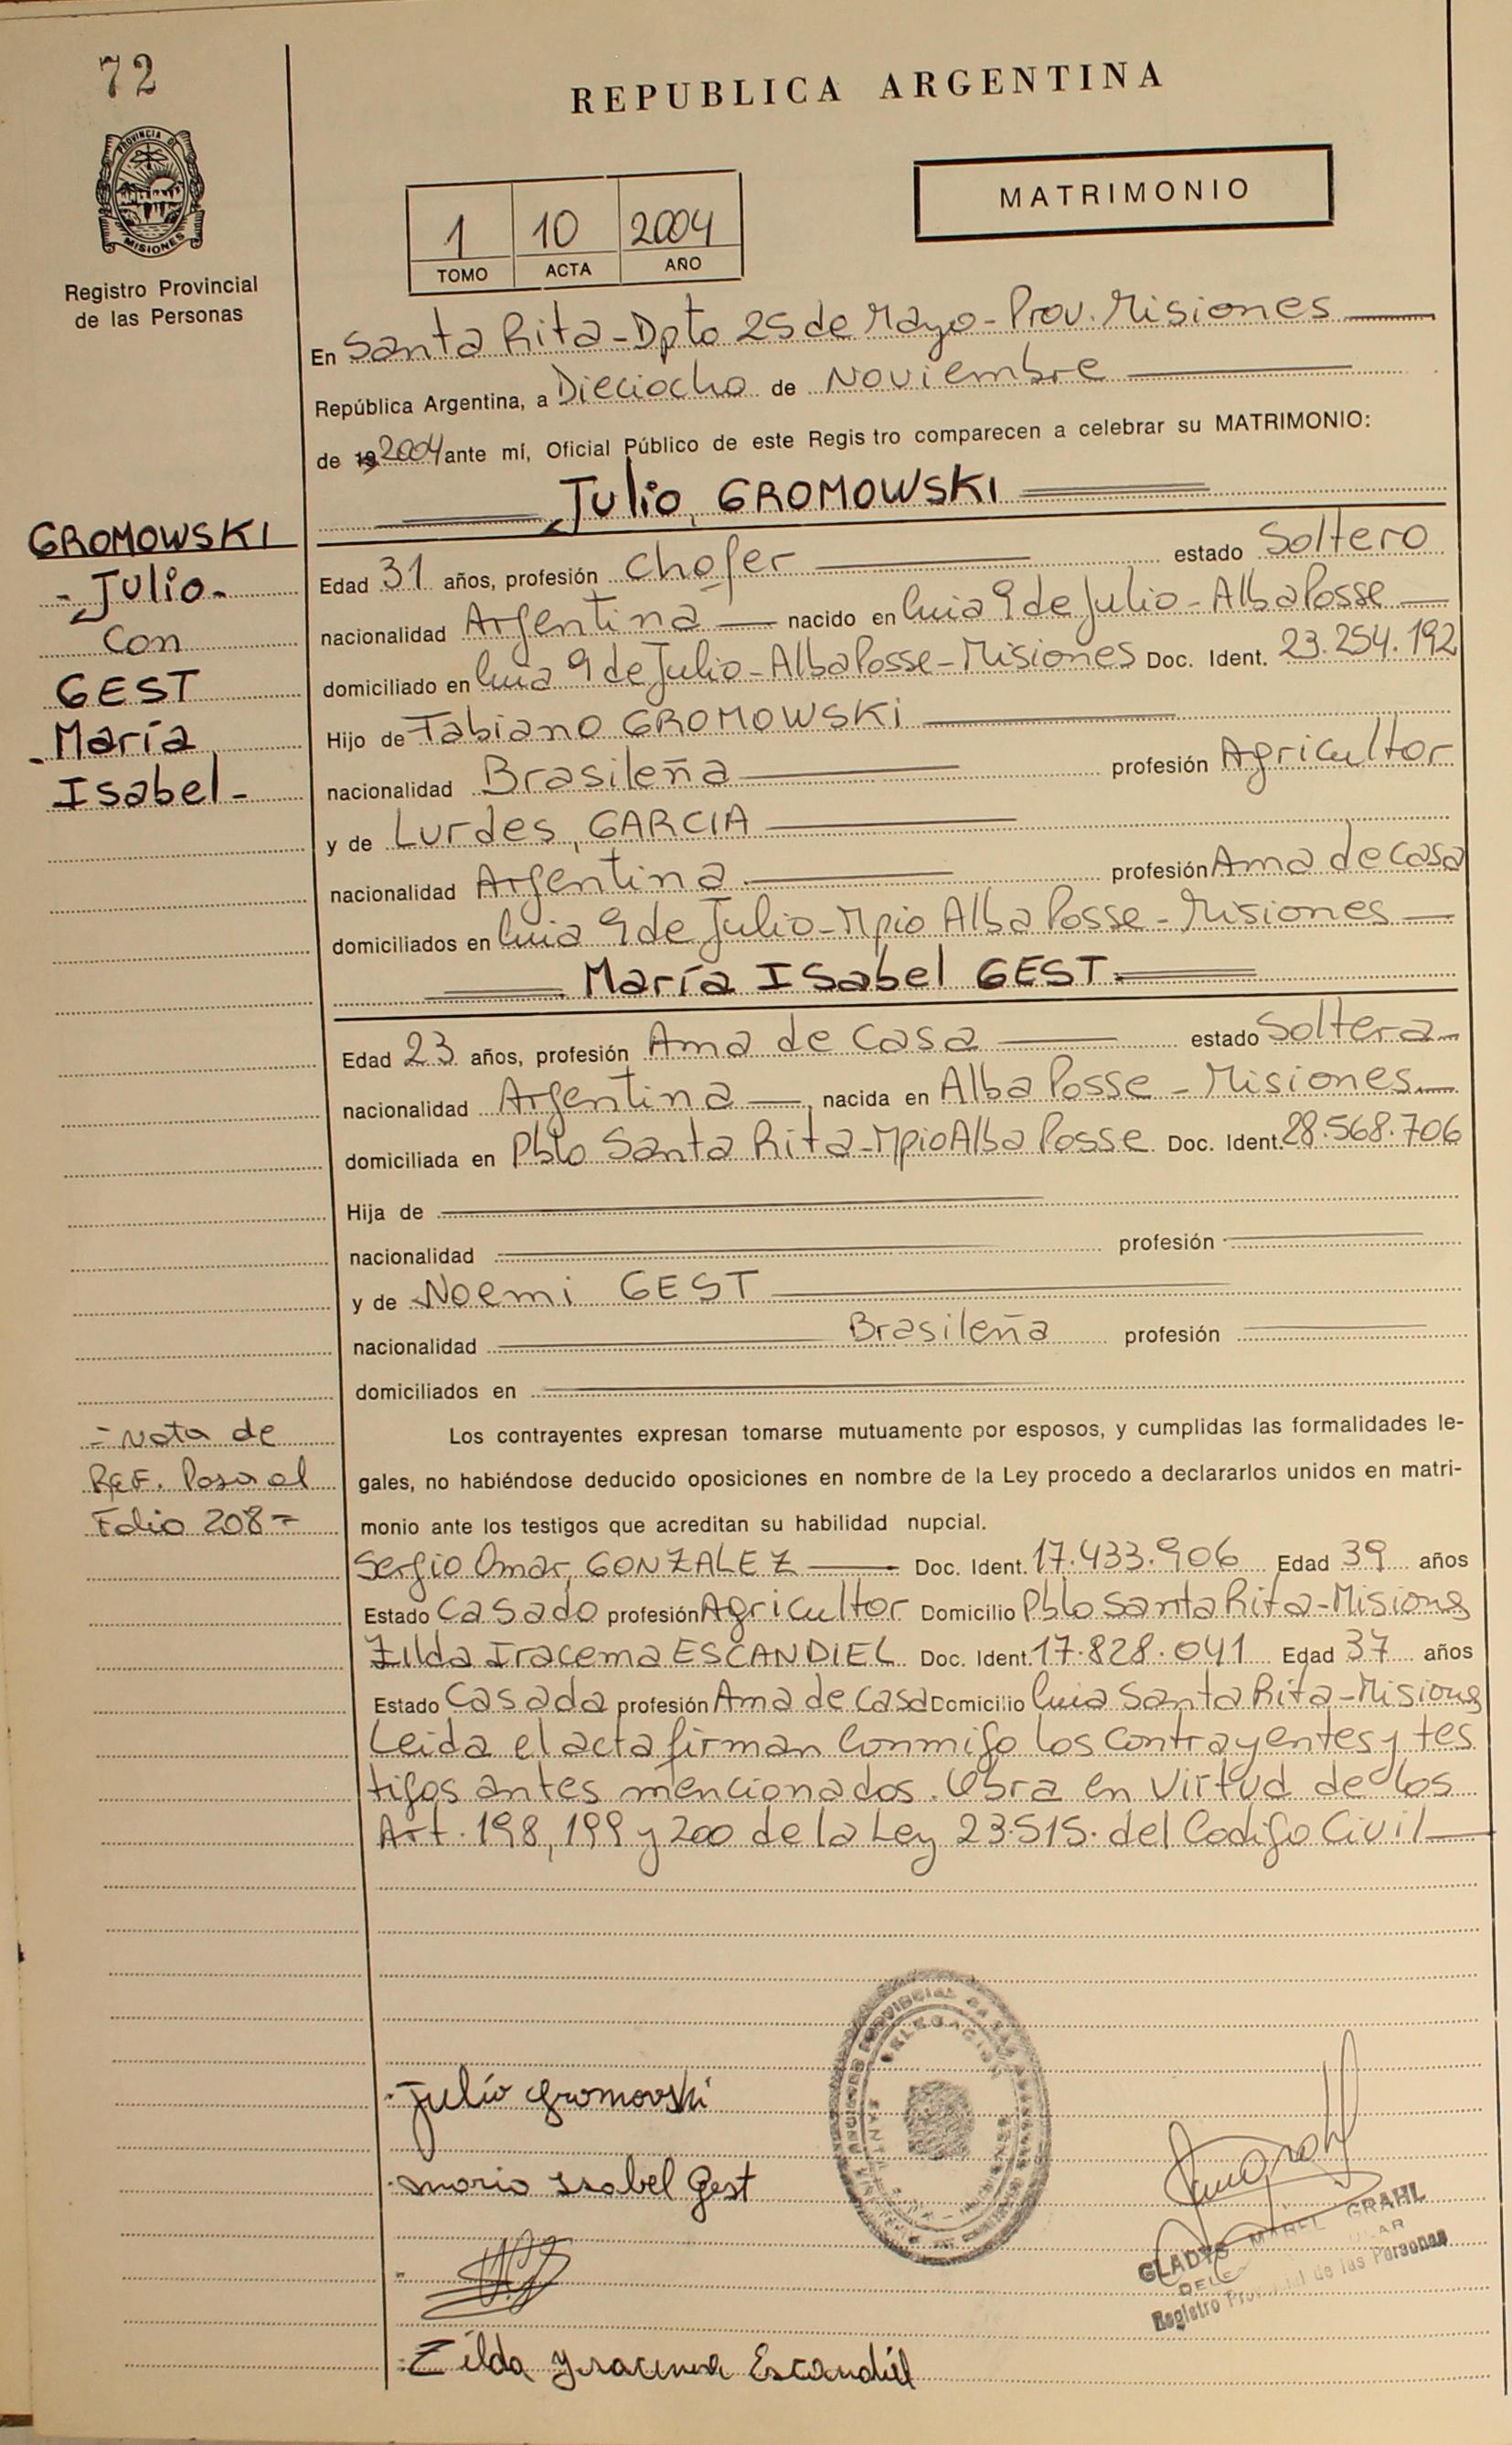 72
REPUBLICA ARGENTINA
PROVINCIA DE
MISIONES
Registro Provincial
de las Personas
1 10 2004
TOMO ACTA AÑO
MATRIMONIO
En Santa Rita - Dpto 25 de Mayo - Prov. Misiones
República Argentina, a Dieciocho de Noviembre
de 19 2004 ante mí, Oficial Público de este Regis tro comparecen a celebrar su MATRIMONIO:
Julio, GROMOWSKI
GROMOWSKI
- Julio -
Con
GEST
- María
Isabel -
Edad 31 años, profesión Chofer estado Soltero
nacionalidad Argentina nacido en 9 de Julio - Alba Posse
domiciliado en 9 de Julio - Alba Posse - Misiones Doc. Ident. 23.254.192
Hijo de Fabiano GROMOWSKI
nacionalidad Brasileña profesión Agricultor
y de Lurdes, GARCIA
nacionalidad Argentina profesión Ama de casa
domiciliados en 9 de Julio - Mpio Alba Posse - Misiones
María ISabel GEST
Edad 23 años, profesión Ama de Casa estado Soltera
nacionalidad Argentina, nacida en Alba Posse - Misiones
domiciliada en Pblo Santa Rita - Mpio Alba Posse Doc. Ident. 28.568.706
Hija de
nacionalidad profesión
y de Noemi GEST
nacionalidad Brasileña profesión
domiciliados en
= Nota de
REF. Pasa al
Folio 208 =
Los contrayentes expresan tomarse mutuamente por esposos, y cumplidas las formalidades le-
gales, no habiéndose deducido oposiciones en nombre de la Ley procedo a declararlos unidos en matri-
monio ante los testigos que acreditan su habilidad nupcial.
Sergio Omar, GONZALEZ Doc. Ident. 17.433.906 Edad 39 años
Estado Casado profesión Agricultor Domicilio Pblo Santa Rita - Misiones
Zilda Iracema ESCANDIEL Doc. Ident. 17.828.041 Edad 37 años
Estado Casada profesión Ama de casa Domicilio Santa Rita - Misiones
Leida el acta firman Conmigo los contrayentes y tes
tigos antes mencionados. Obra en virtud de los
Art. 198, 199 y 200 de la Ley 23.515. del Codigo Civil
Julio Gromovski
Maria Isabel Gest
Zilda Yracema Escandiel
GLADYS MABEL GRAHL
Registro Provincial de las Personas